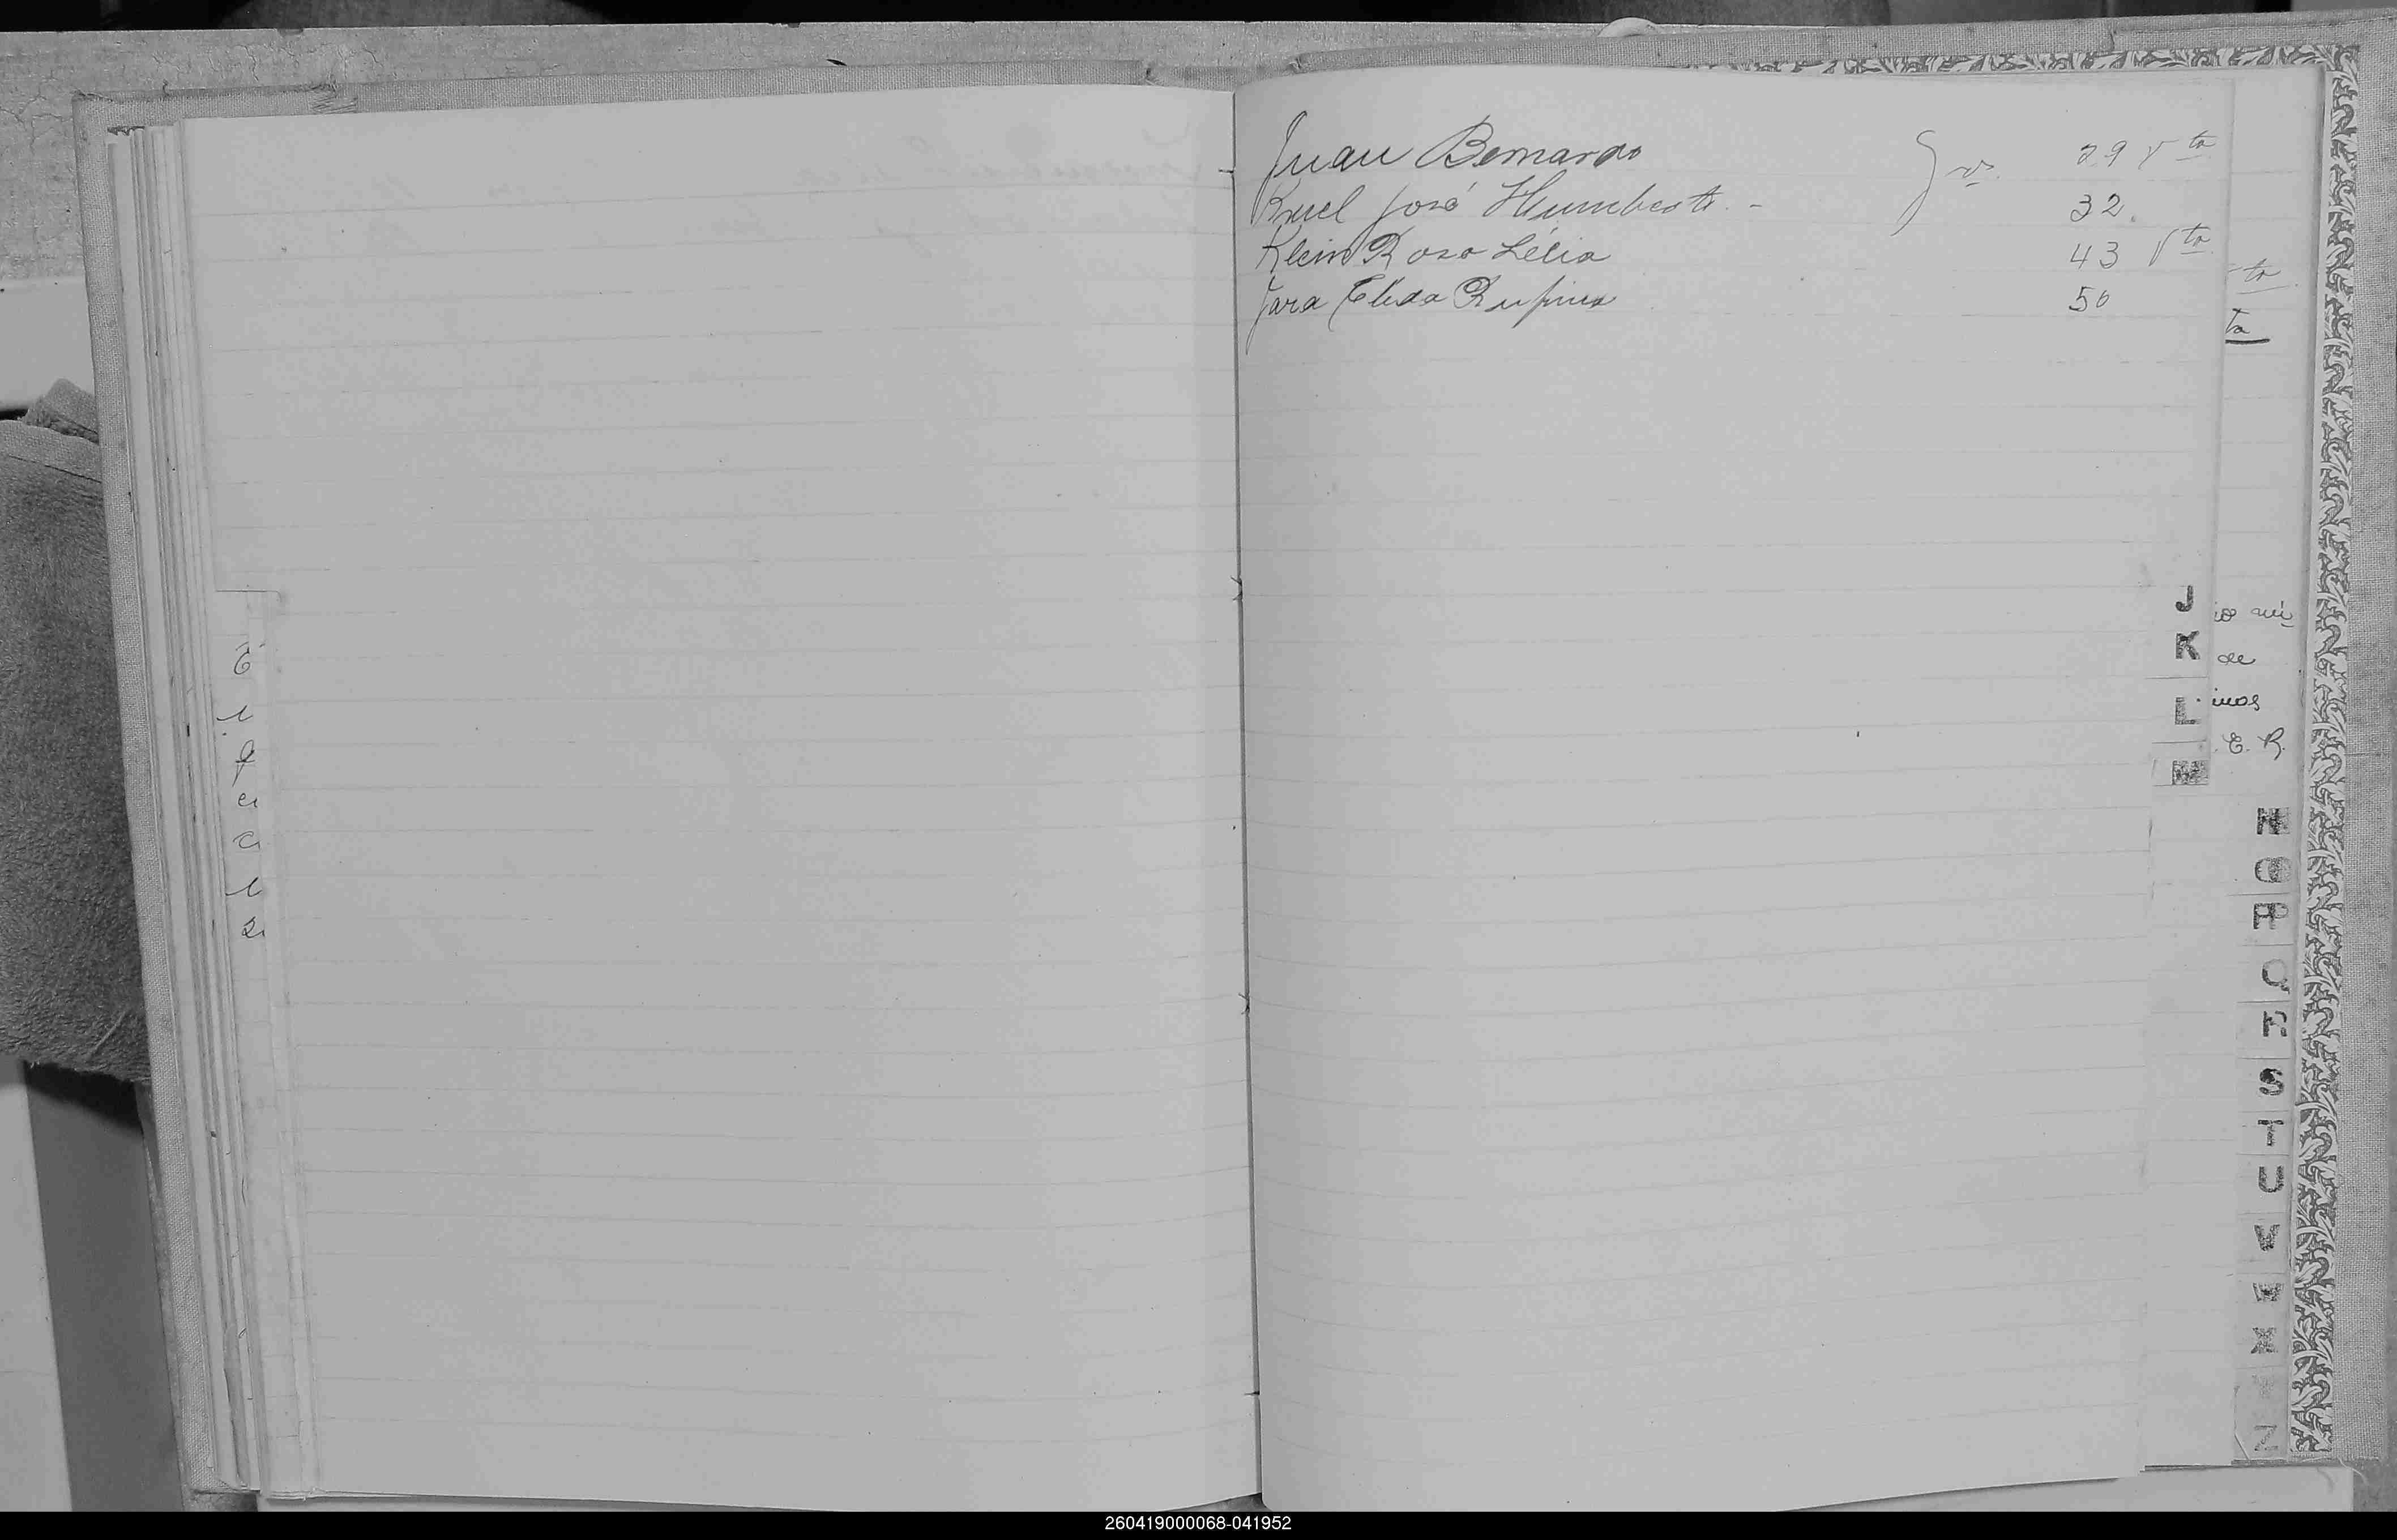 Juan Bernardo 29 Vta
Kruel José Humberto. - 32.
Klein Rosa Lélia 43 Vta
Jara Elida Rufina 50
ta
ta
J
K
L
M
de
E. R.
N
O
P
Q
R
S
T
U
V
W
X
Y
Z
260419000068-041952